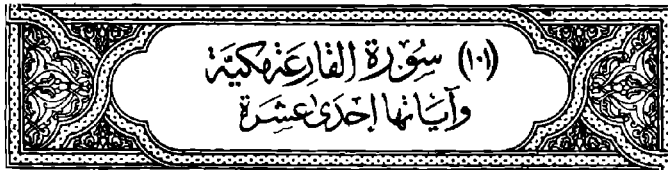 (١٠١) سُوْرَةُ القَارِعَةِ مَكِيَّة
وَآيَاتهَا إِحْدَىٰ عَشِرَة